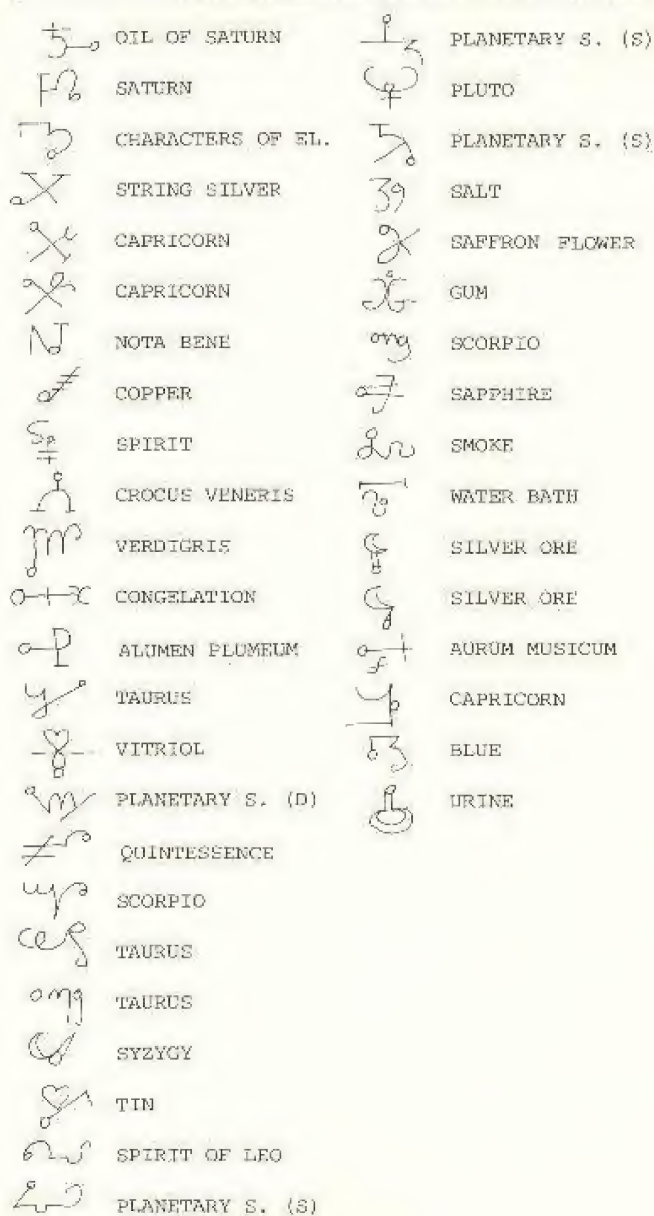 OIL OF SATURN
SATURN
CHARACTERS OF EL.
STRING SILVER
CAPRICORN
CAPRICORN
NOTA BENE
COPPER
SPIRIT
CROCUS VENERIS
VERDIGRIS
CONGELATION
ALUMEN PLUMEUM
TAURUS
VITRIOL
PLANETARY S. (D)
QUINTESSENCE
SCORPIO
TAURUS
TAURUS
SYZYGY
TIN
SPIRIT OF LEO
PLANETARY S. (S)
PLANETARY S. (S)
PLUTO
PLANETARY S. (S)
SALT
SAFFRON FLOWER
GUM
SCORPIO
SAPPHIRE
SMOKE
WATER BATH
SILVER ORE
SILVER ORE
AURUM MUSICUM
CAPRICORN
BLUE
URINE